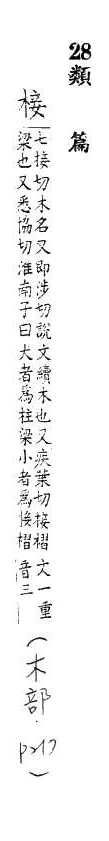 28類篇
椄
七接切木名又即涉切說文續木也又疾葉切椄槢
梁也又悉協切淮南子曰大者為柱梁小者為椄槢
文一重
音三
(木部.
p217)